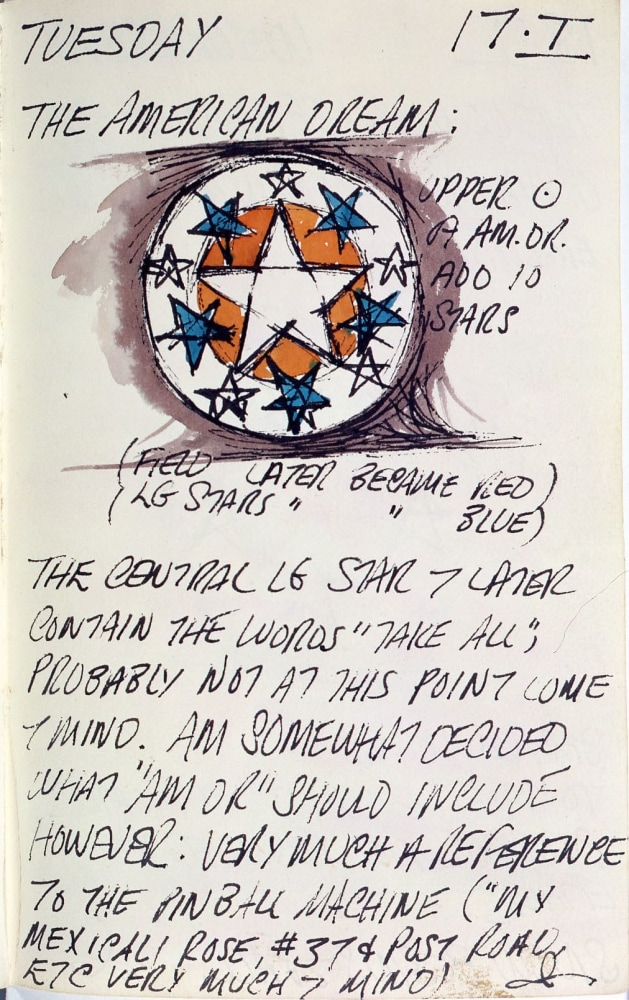 TUESDAY 17.I
THE AMERICAN DREAM:
UPPER ⊙
OF AM.DR.
ADD 10
STARS
(FIELD LATER BECAME RED)
(LG STARS " " BLUE)
THE CENTRAL LG STAR T LATER
CONTAIN THE WORDS "TAKE ALL";
PROBABLY NOT AT THIS POINT COME
T MIND. AM SOMEWHAT DECIDED
WHAT "AM DR" SHOULD INCLUDE
HOWEVER: VERY MUCH A REFERENCE
TO THE PINBALL MACHINE ("MY
MEXICALI ROSE, #37 & POST ROAD,
ETC VERY MUCH T MIND!